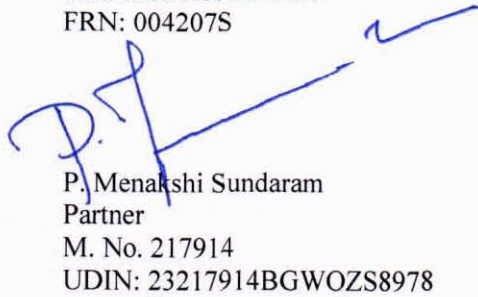 FRN: 004207S
P. Menakshi Sundaram
Partner
M. No. 217914
UDIN: 23217914BGWOZS8978